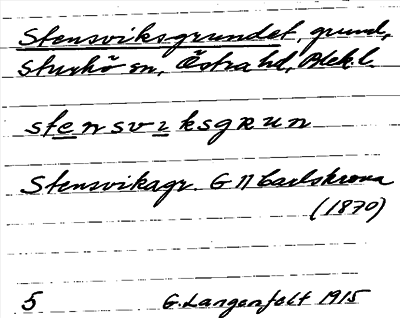 Stensviksgrundet, grund,
Sturkö sn, Östra hd, Blek.l.
stensviksgrun
Stensviksgr. G 11 Carlskrona
(1870)
5 G. Langenfelt 1915